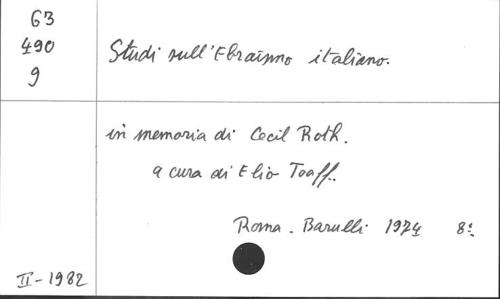 63
490
9
Studi sull'Ebraismo italiano.
in memoria di Cecil Roth.
a cura di Elio Toaff.
Roma - Barulli 1974 8º
II-1982